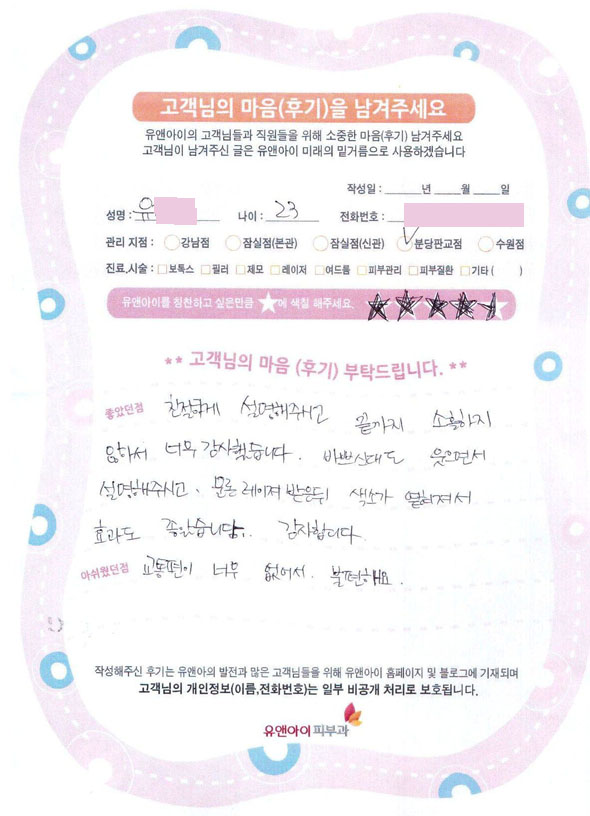 고객님의 마음(후기)을 남겨주세요
유앤아이의 고객님들과 직원들을 위해 소중한 마음(후기) 남겨주세요
고객님이 남겨주신 글은 유앤아이 미래의 밑거름으로 사용하겠습니다
작성일 : ______년 ____월 ____일
성명 : 유 나이 : 23 전화번호 :
관리 지점 : 강남점 잠실점(본관) 잠실점(신관) 분당판교점 수원점
진료,시술 : 보톡스 필러 제모 레이저 여드름 피부관리 피부질환 기타 ( )
유앤아이를 칭찬하고 싶은만큼 ★에 색칠 해주세요.
** 고객님의 마음 (후기) 부탁드립니다. **
좋았던점 친절하게 설명해주시고 끝까지 소홀하지
않아서 너무 감사했습니다. 바쁘신대도 웃으면서
설명해주시고, 물론 레이져 받은뒤 색소가 옅어져서
효과도 좋았습니다.. 감사합니다
아쉬웠던점 교통편이 너무 없어서. 불편해요.
작성해주신 후기는 유앤아의 발전과 많은 고객님들을 위해 유앤아이 홈페이지 및 블로그에 기재되며
고객님의 개인정보(이름,전화번호)는 일부 비공개 처리로 보호됩니다.
유앤아이피부과